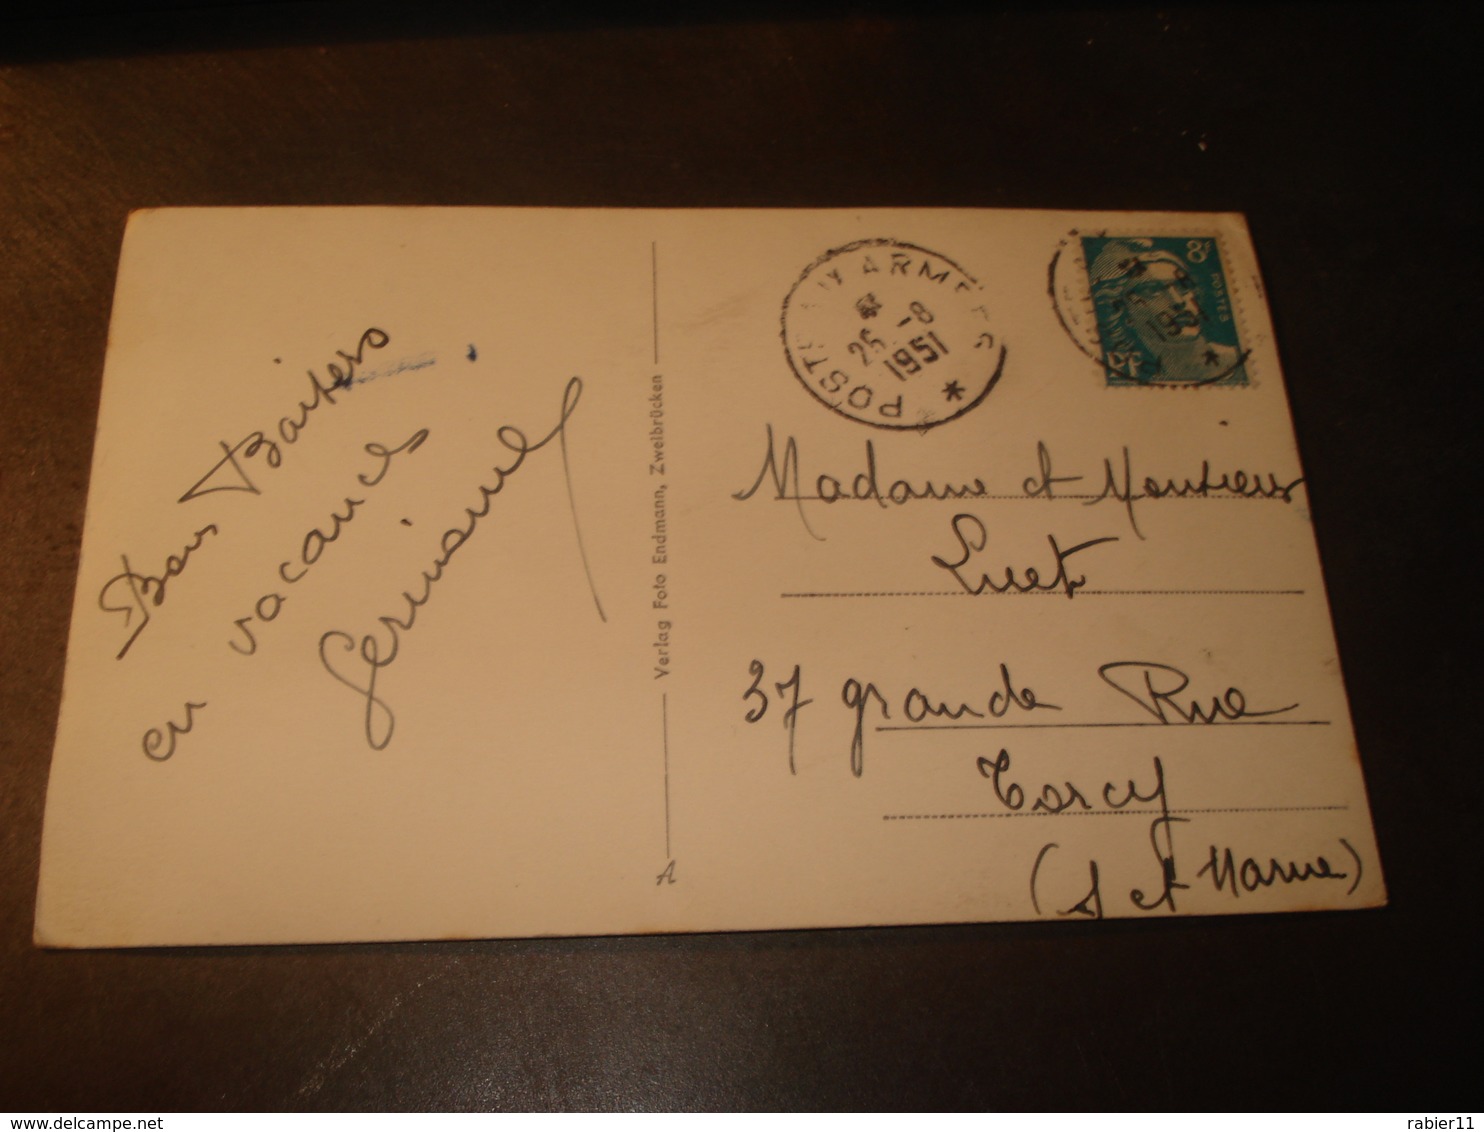 Bons Baisers
en vacances
Germaine
Verlag Foto Endmann, Zweibrücken
A
POSTE AUX ARMEES
25 -8
1951
8F
POSTES
Madame et Monsieur
Luet
37 grande Rue
Torcy
(S et Marne)
delcampe.net
rabier11